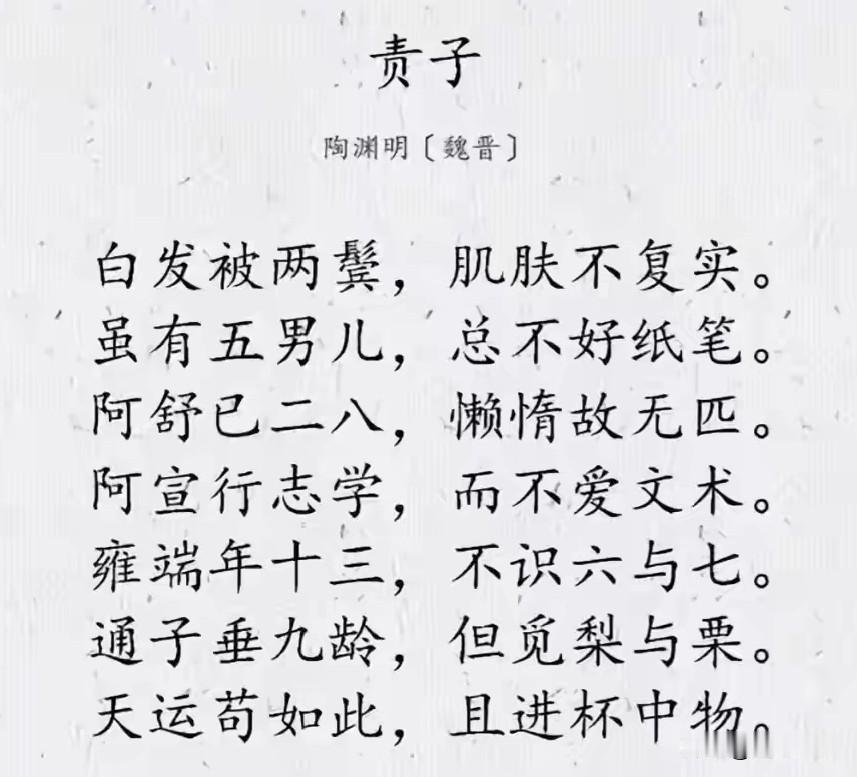 责子
陶渊明〔魏晋〕
白发被两鬓，肌肤不复实。
虽有五男儿，总不好纸笔。
阿舒已二八，懒惰故无匹。
阿宣行志学，而不爱文术。
雍端年十三，不识六与七。
通子垂九龄，但觅梨与栗。
天运苟如此，且进杯中物。